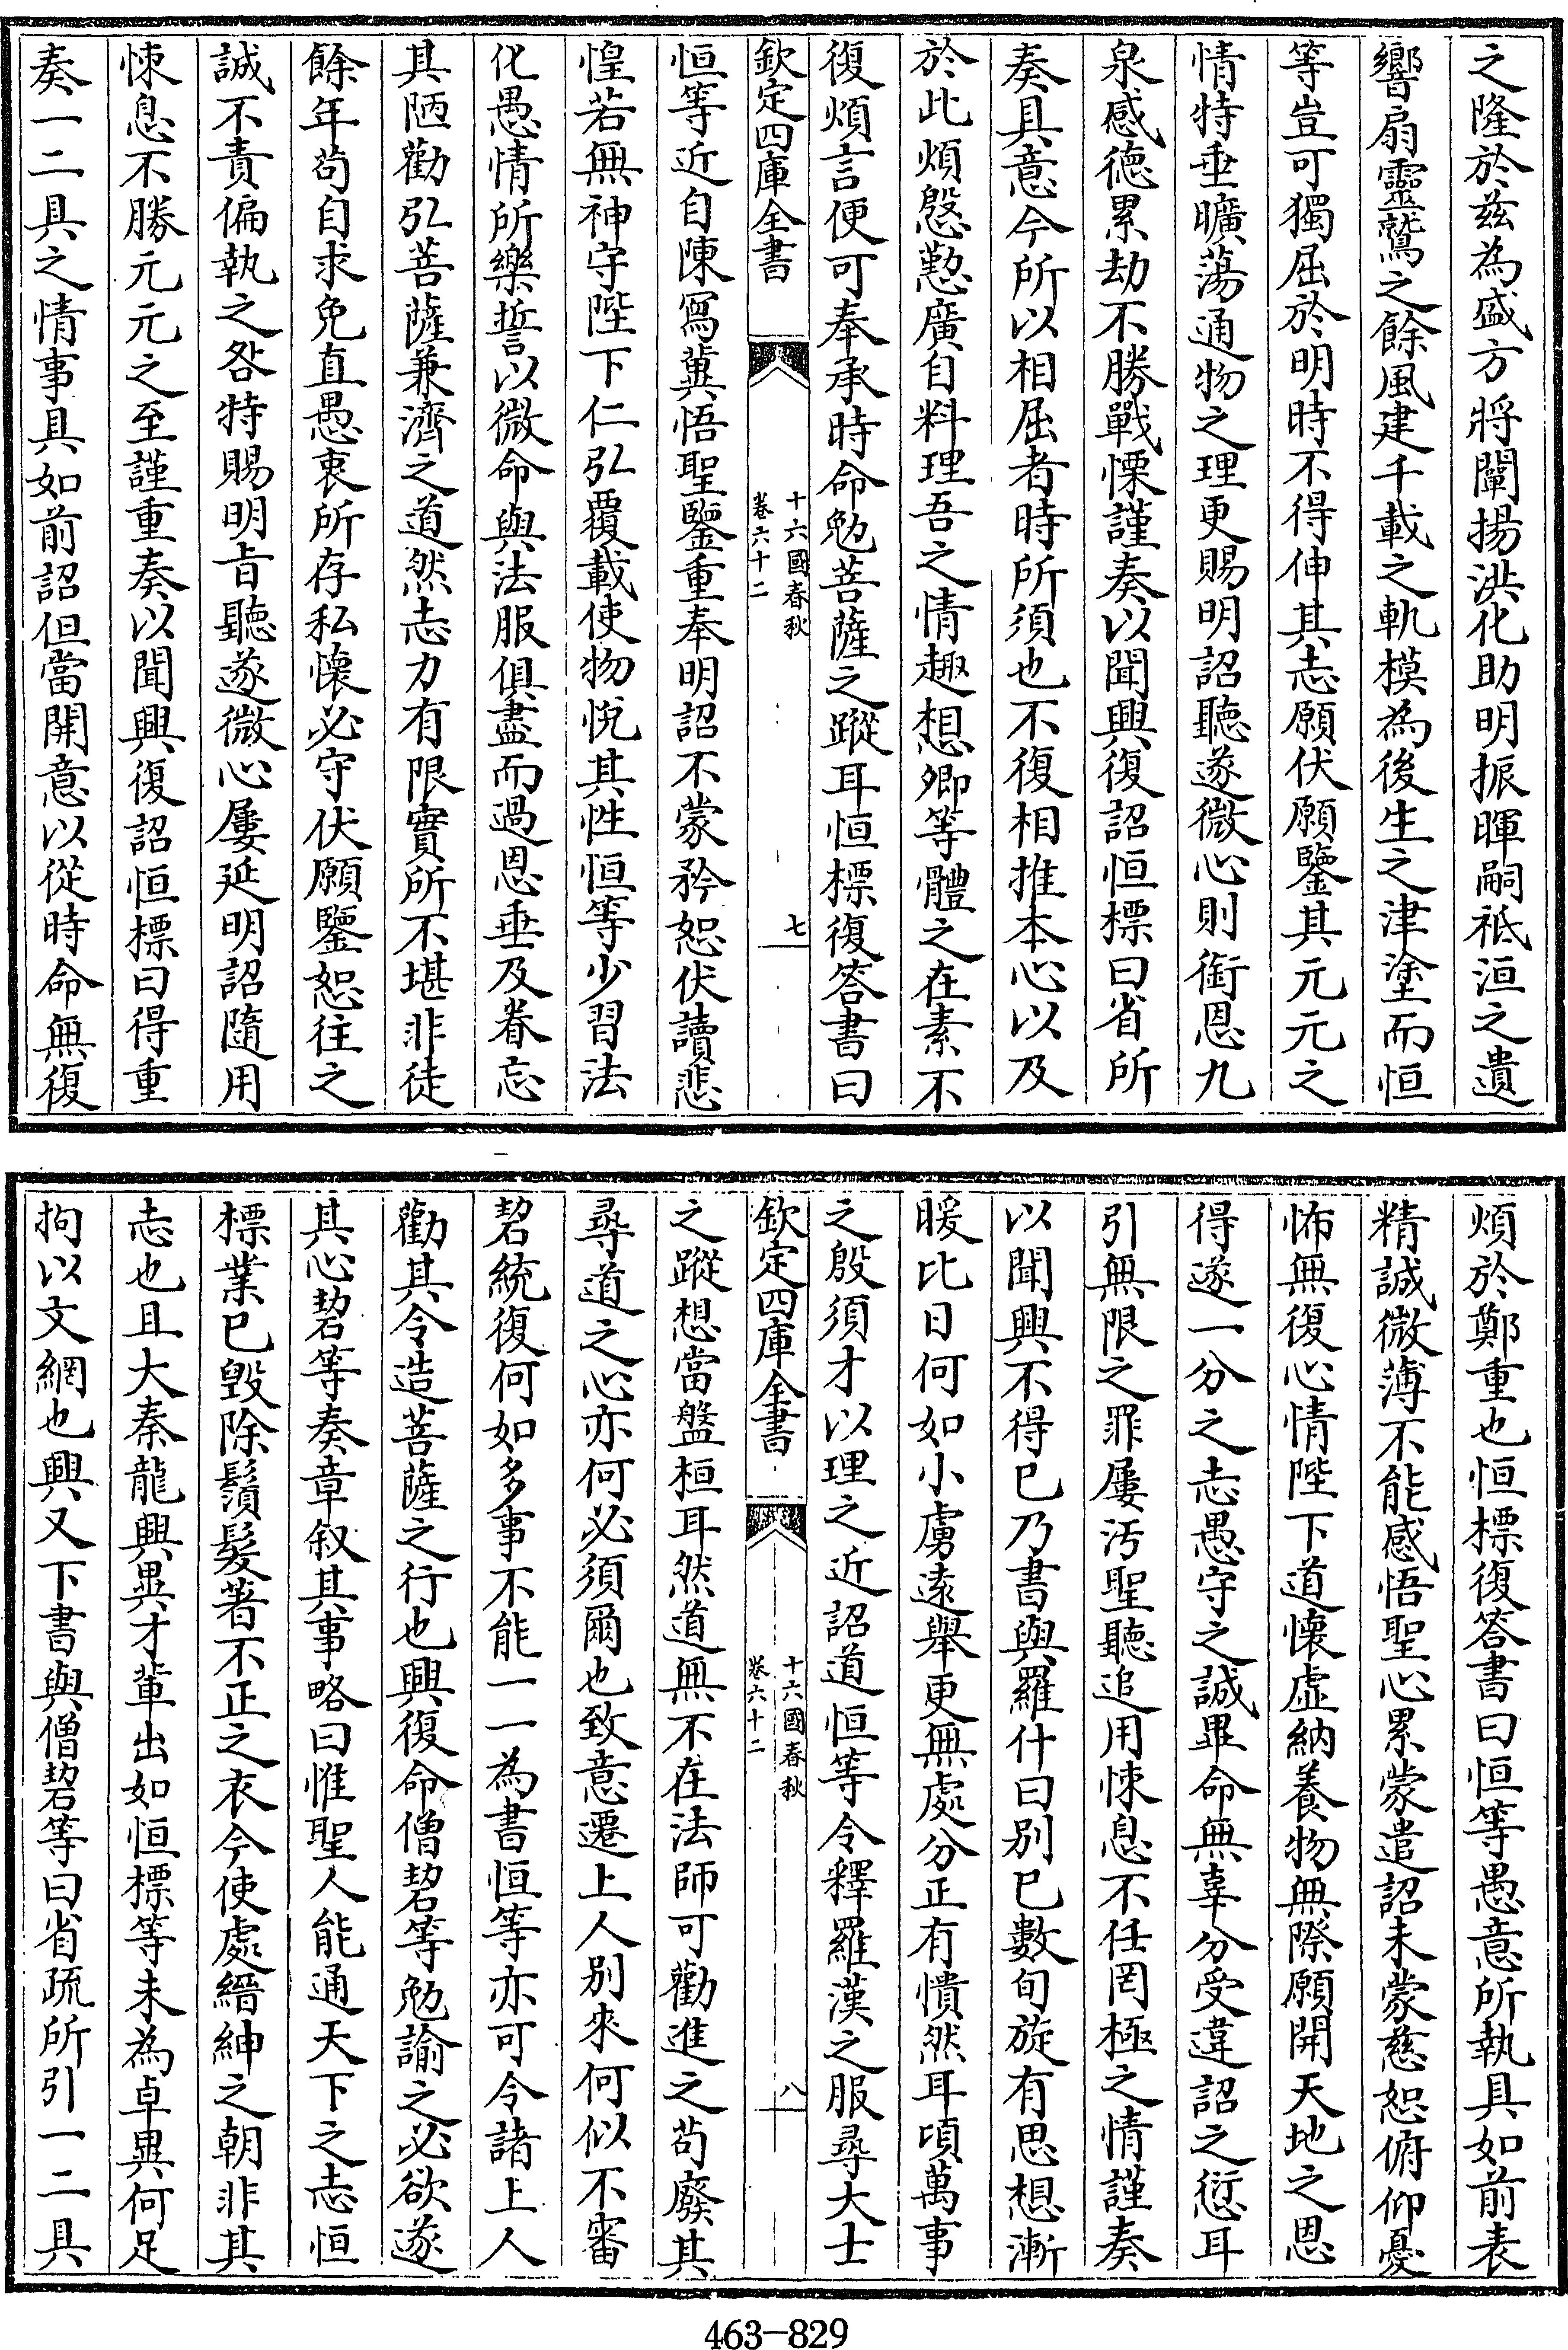 之隆於兹為盛方將闡揚洪化助明振暉嗣祗洹之遺
響扇靈鷲之餘風建千載之軌模為後生之津塗而恒
等豈可獨屈於明時不得伸其志願伏願鑒其元元之
情特垂曠蕩通物之理更賜明詔聽遂微心則銜恩九
泉感德累劫不勝戰慄謹奏以聞興復詔恒標曰省所
奏具意今所以相屈者時所須也不復相推本心以及
於此煩慇懃廣自料理吾之情趣想卿等體之在素不
復煩言便可奉承時命勉菩薩之蹤耳恒標復答書曰
欽定四庫全書
十六國春秋
卷六十二
七
恒等近自陳寫冀悟聖鑒重奉明詔不蒙矜恕伏讀悲
惶若無神守陛下仁弘覆載使物悅其性恒等少習法
化愚情所樂誓以微命與法服俱盡而過恩垂及眷忘
其陋勸弘菩薩兼濟之道然志力有限實所不堪非徒
餘年苟自求免直愚衷所存私懷必守伏願鑒恕往之
誠不責偏執之咎特賜明旨聽遂微心屢延明詔隨用
悚息不勝元元之至謹重奏以聞興復詔恒標曰得重
奏一二具之情事具如前詔但當開意以從時命無復
煩於鄭重也恒標復答書曰恒等愚意所執具如前表
精誠微薄不能感悟聖心累蒙遣詔未蒙慈恕俯仰憂
怖無復心情陛下道懷虛納養物無際願開天地之恩
得遂一分之志愚守之誠畢命無辜分受違詔之愆耳
引無限之罪屢汚聖聽追用悚息不任罔極之情謹奏
以聞興不得已乃書與羅什曰別已數旬旋有思想漸
暖比日何如小虜遠舉更無處分正有憒然耳頃萬事
之殷須才以理之近詔道恒等令釋羅漢之服尋大士
欽定四庫全書
十六國春秋
卷六十二
八
之蹤想當盤桓耳然道無不在法師可勸進之苟廢其
尋道之心亦何必須爾也致意遷上人別來何似不審
䂮統復何如多事不能一一為書恒等亦可令諸上人
勸其令造菩薩之行也興復命僧䂮等勉諭之必欲遂
其心䂮等奏章叙其事略曰惟聖人能通天下之志恒
標業已毀除鬚髮著不正之衣今使處縉紳之朝非其
志也且大秦龍興異才輩出如恒標等未為卓異何足
拘以文網也興又下書與僧䂮等曰省疏所引一二具
463-829